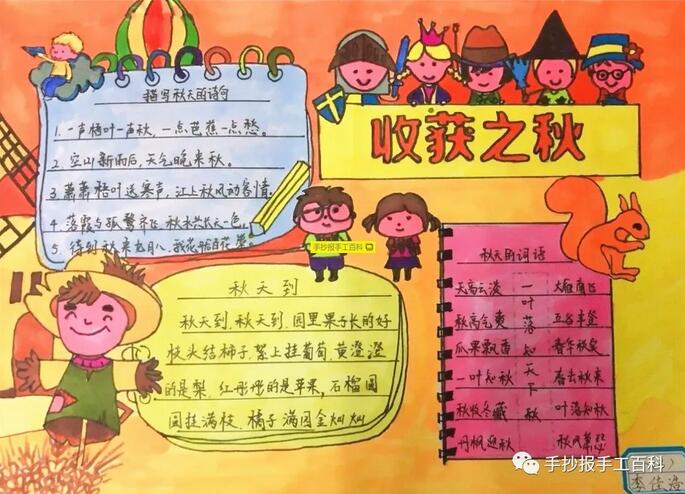 收获之秋
描写秋天的诗句
1. 一声梧叶一声秋，一点芭蕉一点愁。
2. 空山新雨后，天气晚来秋。
3 萧萧梧叶送寒声，江上秋风动客情。
4 落霞与孤鹜齐飞，秋水共长天一色。
5 待到秋来九月八，我花开后百花
手抄报手工百科
秋天到
秋天到，秋天到，园里果子长的好
枝头结柿子，架上挂葡萄，黄澄澄
的是梨，红彤彤的是苹果，石榴圆
圆挂满枝，橘子满园金灿灿
秋天的词语
天高云淡
秋高气爽
瓜果飘香
一叶知秋
秋收冬藏
丹枫迎秋
一叶落知天下秋
大雁南飞
五谷丰登
春华秋实
春去秋来
叶落知秋
秋风萧瑟
李佳浩
手抄报手工百科